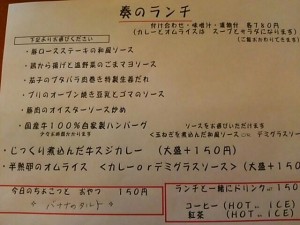 奏のランチ
付け合わせ・味噌汁・漬物付 各780円
(カレーとオムライスは スープとサラダになります)
下記よりお選びください
(ご飯おかわりできます)
・豚ロースステーキの和風ソース
・鶏から揚げと温野菜のごまマヨソース
・茄子のブタバラ肉巻き特製生姜だれ
・ブリのオーブン焼き豆乳とゴマのソース
・豚肉のオイスターソース炒め
・国産牛100%自家製ハンバーグ
ソースをお選びいただけます
<玉ねぎを煮込んだ和風ソース or デミグラスソース
・じっくり煮込んだ牛スジカレー (大盛+150円)
・半熟卵のオムライス <カレーorデミグラスソース> (大盛+150
今日のちょこっと おやつ 150円
バナナのタルト
ランチと一緒にドリンク 150円
コーヒー (HOT or ICE)
紅茶 (HOT or ICE)